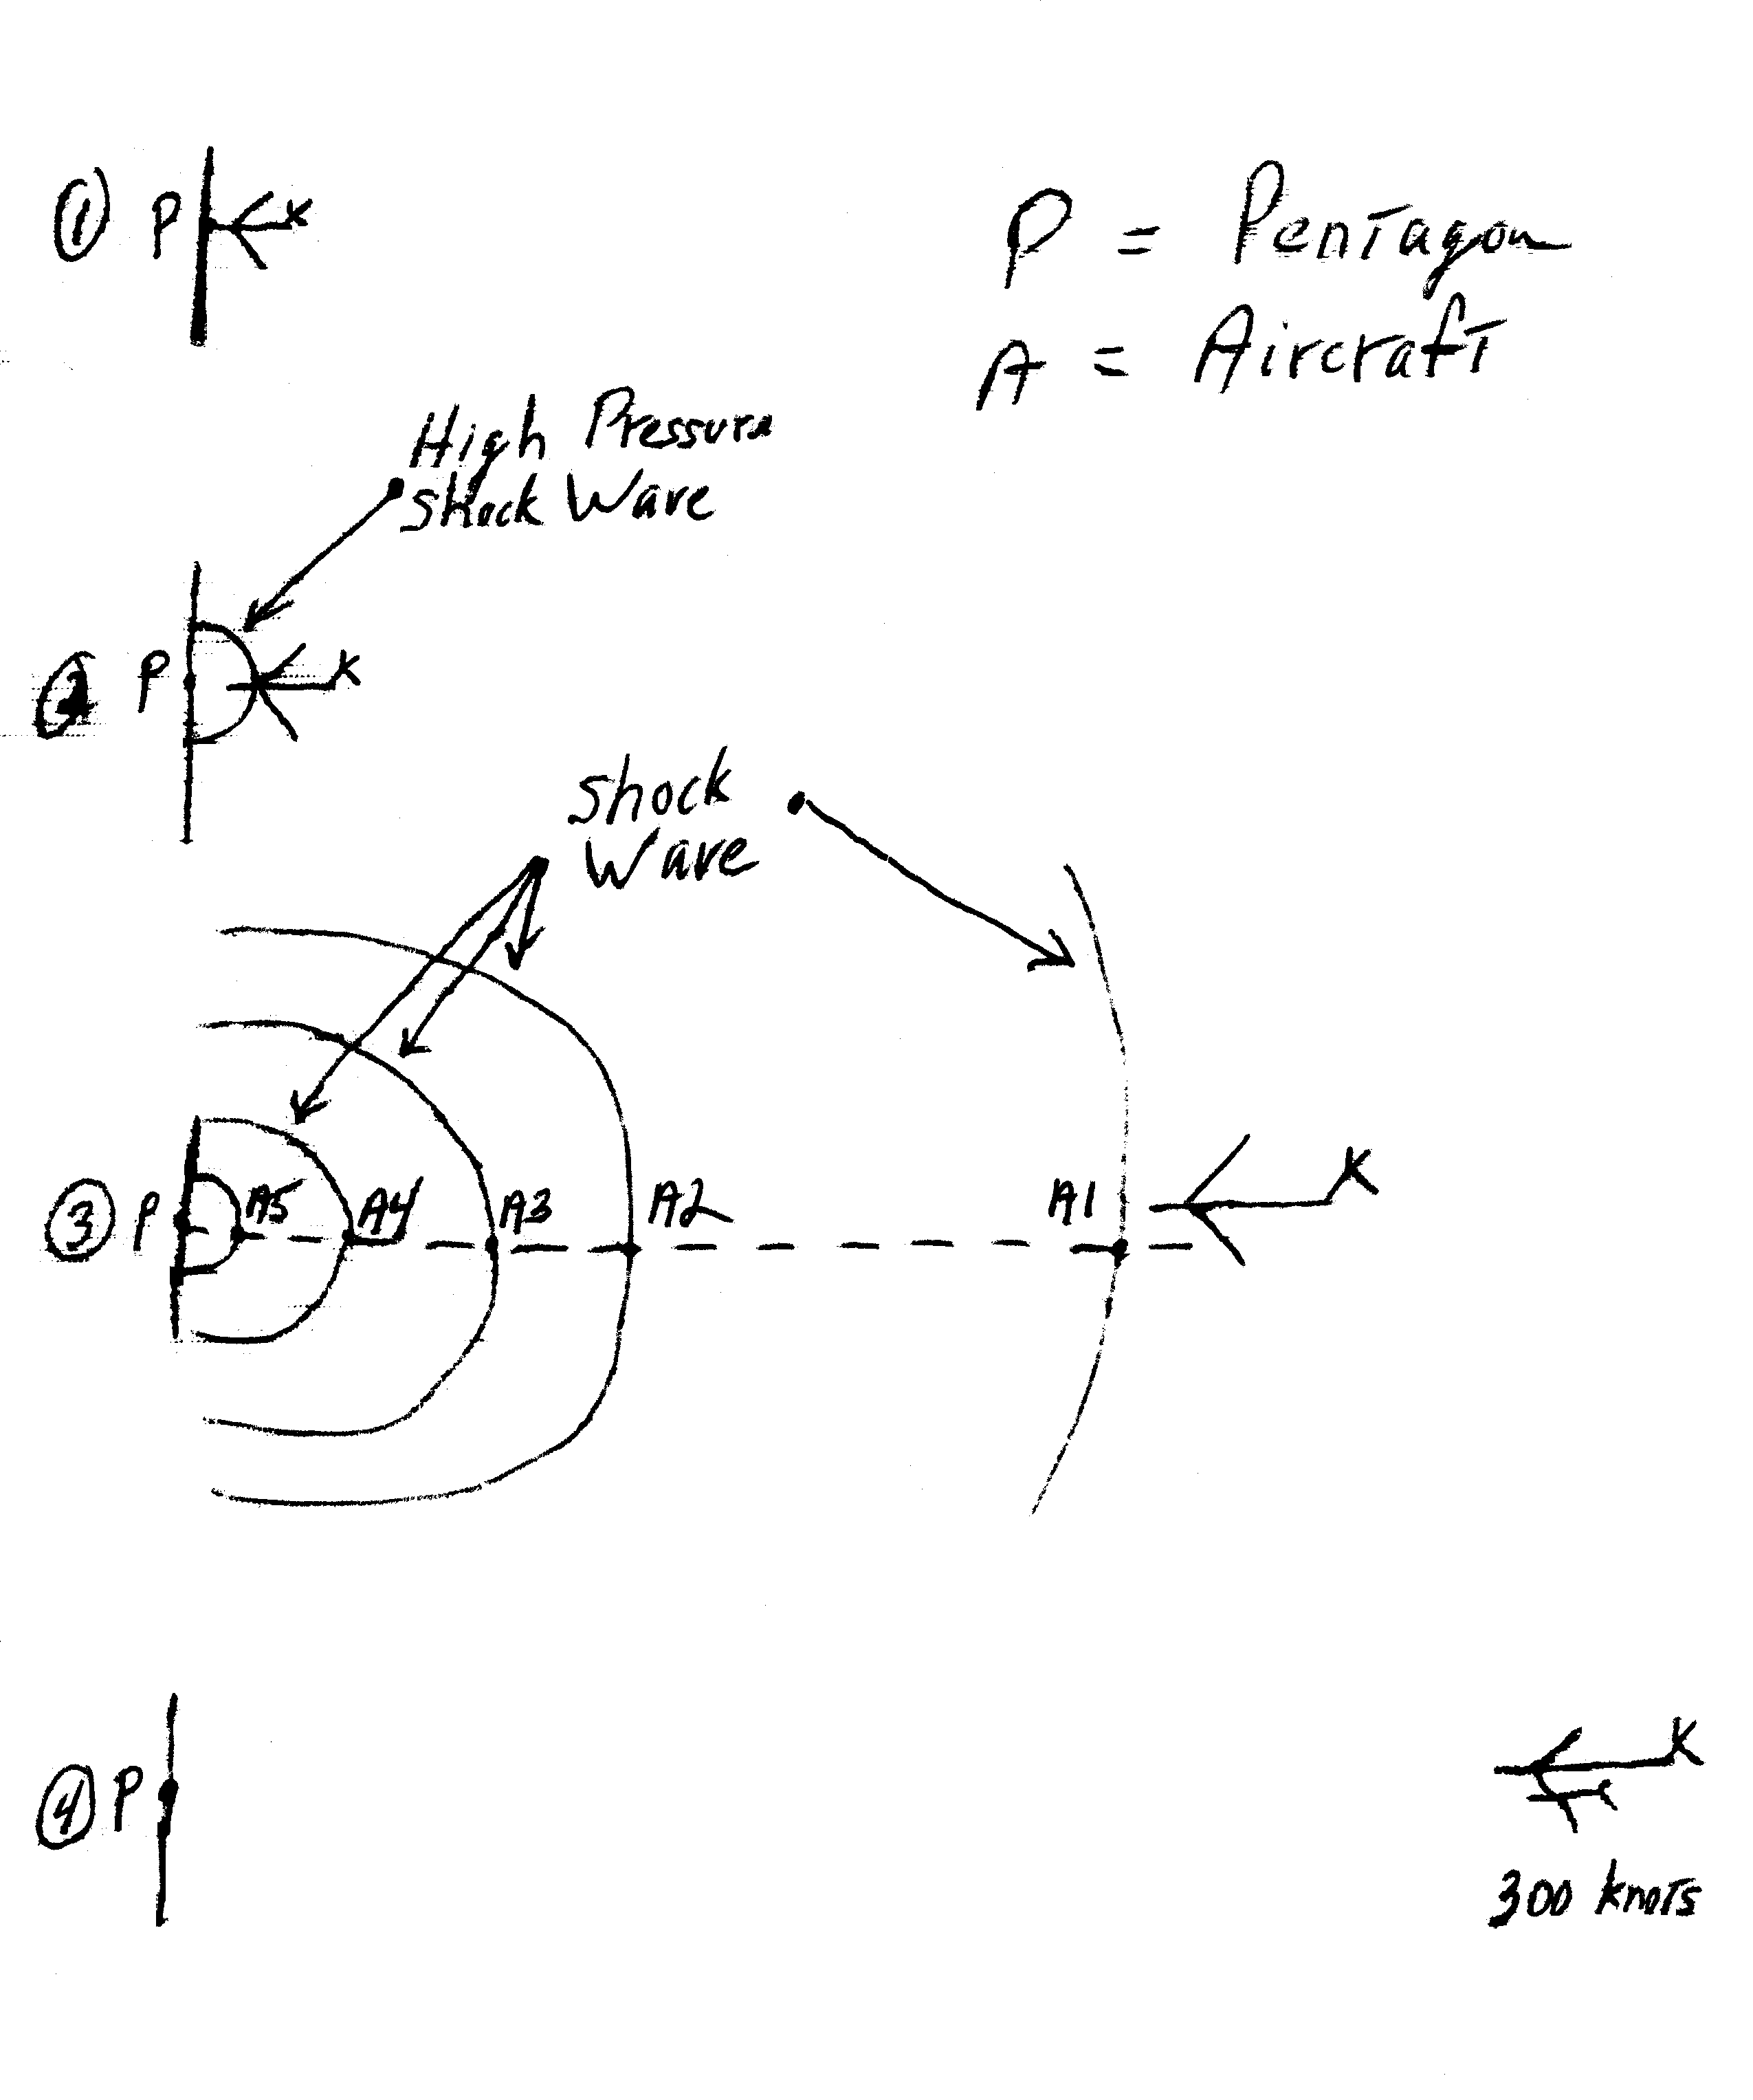 ① P
P = Pentagon
A = Aircraft
High Pressure
Shock Wave
② P
Shock
Wave
③ P A5 A4 A3 A2 A1
④ P
300 knots